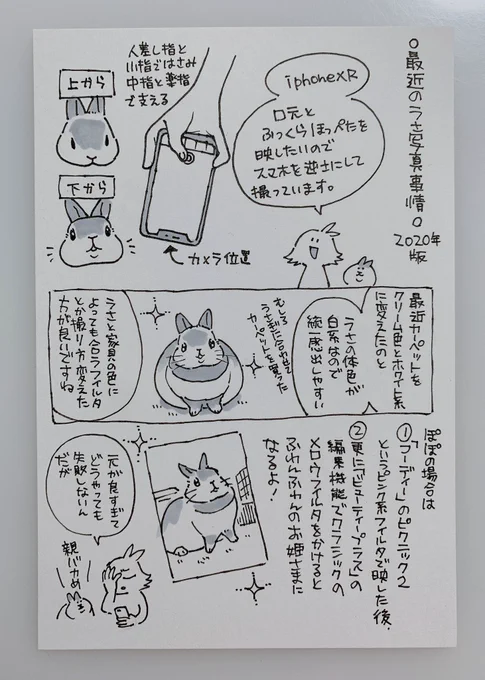 ○最近のうさ写真事情○
2020年版
iphoneXR
口元と
ふっくらほっぺたを
映したいので
スマホを逆さにして
撮っています。
人差し指と
小指ではさみ
中指と薬指
で支える
上から
下から
カメラ位置
最近カーペットを
クリーム色とホワイト系
に変えたのと
うさの体色が
白系なので
統一感出しやすい
むしろ
うさぎに合わせて
カーペットを買った
うさと家具の色に
よっても合うフィルタ
とか撮り方変えた
方が良いですね
ぽぽの場合は
①「フーディー」のピクニック2
というピンク系フィルタで映した後、
②更に「ビューティープラス」の
編集機能でクラシックの
メロウフィルタをかけると
ふわんふわんのお姫さまに
なるよ!
元が良すぎて
どうやっても
失敗しないん
だが
親バカめ